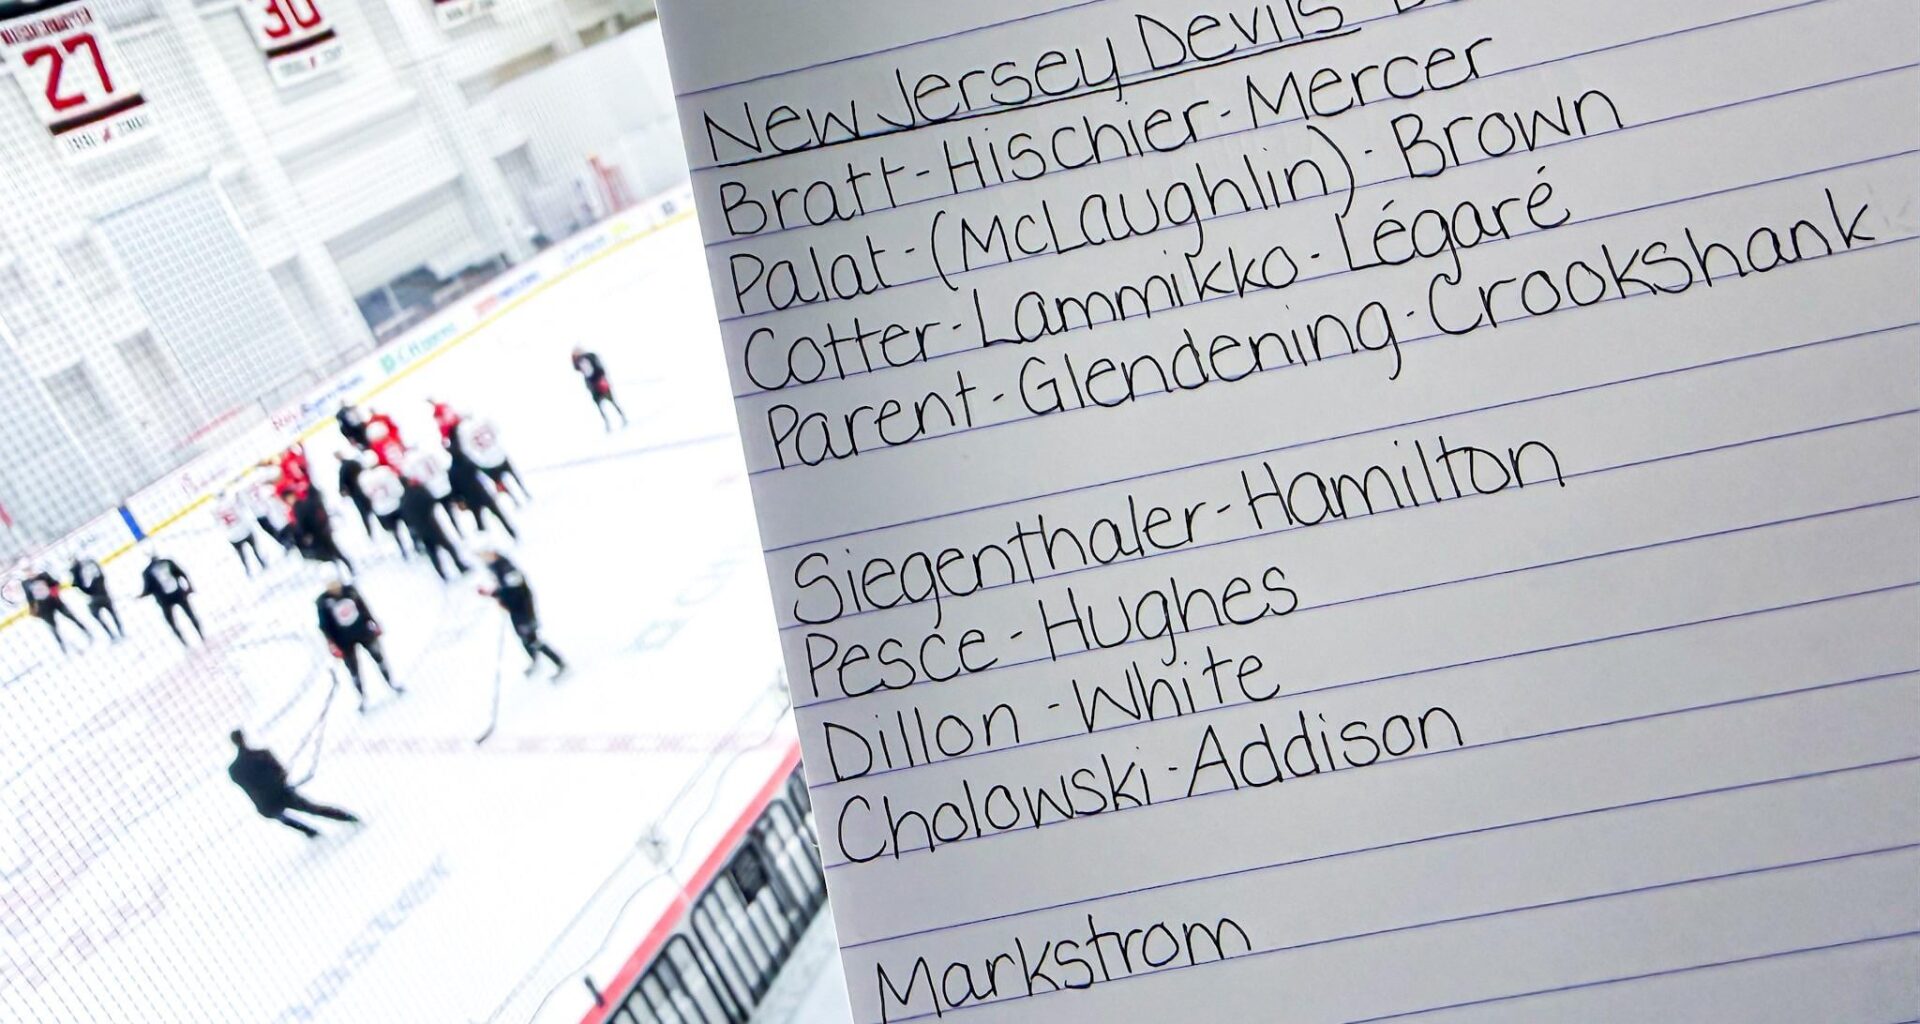 27
30
New Jersey Devils
Bratt-Hischier-Mercer
Palat-(McLaughlin)-Brown
Cotter-Lammikko-Légaré
Parent-Glendening-Crookshank
Siegenthaler-Hamilton
Pesce-Hughes
Dillon-White
Cholowski-Addison
Markstrom